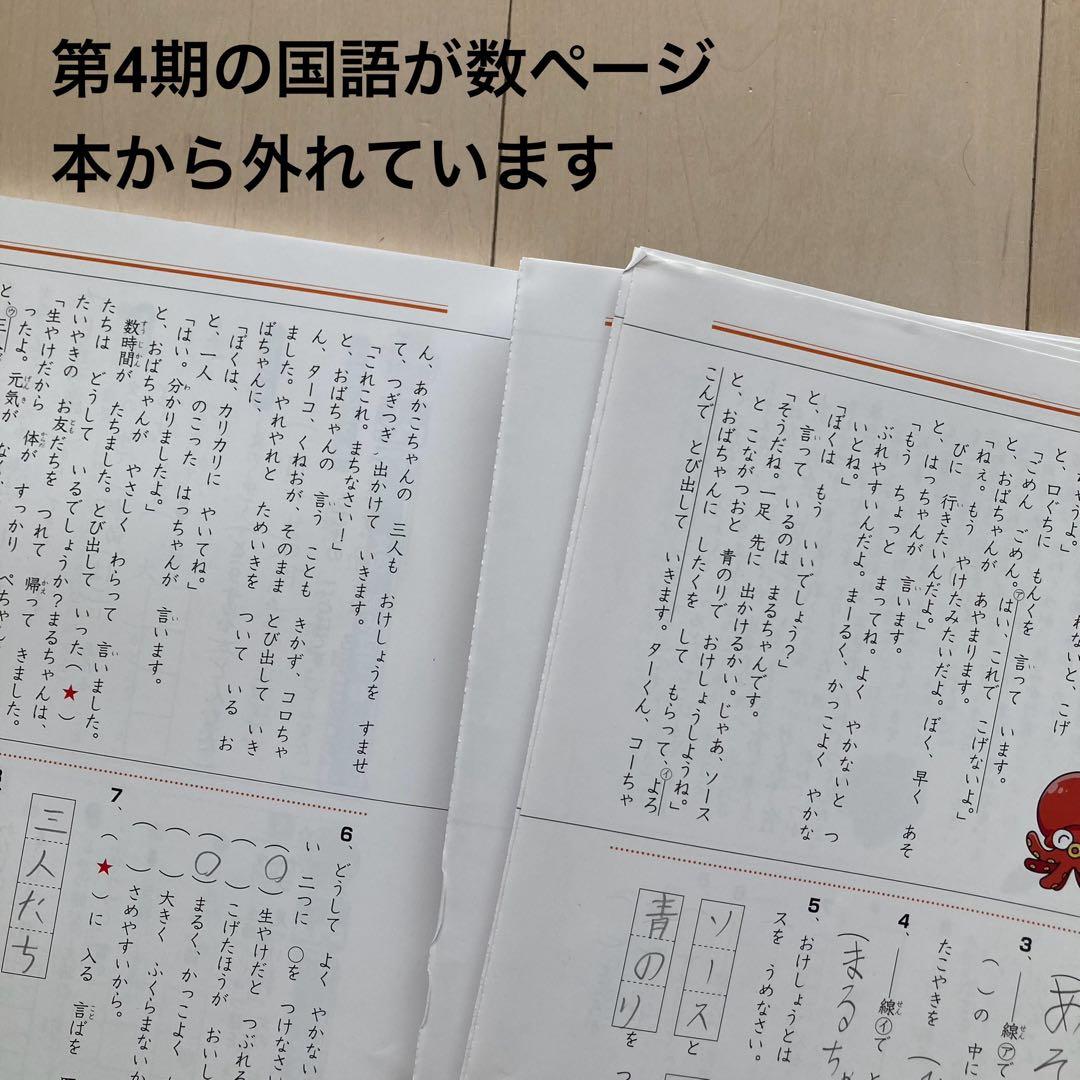 第4期の国語が数ページ
本から外れています
れないと、こげ
そうよ。」
と、口ぐちに もんくを 言って います。
「ごめん ごめん。㋐はい、これで こげないよ。」
と、おばちゃんが あやまります。
「ねぇ。もう やけたみたいだよ。ぼく、早く あそ
びに 行きたいんだよ。」
と、はっちゃんが 言います。
「もう ちょっと まってね。よく やかないと つ
ぶれやすいんだよ。まーるく、かっこよく やかな
いとね。」
「ぼくは もう いいでしょう?」
と、言って いるのは まるちゃんです。
「そうだね。一足 先に 出かけるかい。じゃあ、ソース
と こながつおと 青のりで おけしょうしようね。」
と、おばちゃんに したくを して もらって、㋑よろ
こんで とび出して いきます。ターくん、コーちゃ
ん、あかこちゃんの 三人も おけしょうを すませ
て、つぎつぎ 出かけて いきます。
「これこれ。まちなさい!」
と、おばちゃんの 言う ことも きかず、コロちゃ
ん、ターコ、くねおが、そのまま とび出して いき
ました。やれやれと ためいきを ついて いる お
ばちゃんに、
「ぼくは、カリカリに やいてね。」
と、一人 のこった はっちゃんが 言います。
「はい。分かりましたよ。」
と、おばちゃんが やさしく わらって 言いました。
数時間が たちました。とび出して いった(★)
たちは どうして いるでしょうか?まるちゃんは、
たいやきの お友だちを つれて 帰って きました。
「生やけだから 体が すっかり
ったよ。元気が なく
3、
線㋐で
( )の 中に
たこやきを
4、
線㋑で
(まるち
5、おけしょうとは
スを うめなさい。
ソース と
青のり を
6、どうして よく やかない
い 二つに ○を つけなさい
(○)生やけだと つぶれる
( )こげたほうが おいし
(○)まるく、かっこよく
( )大きく ふくらまない
( )さめやすいから。
7、(★)に 入る 言ばを
三人たち